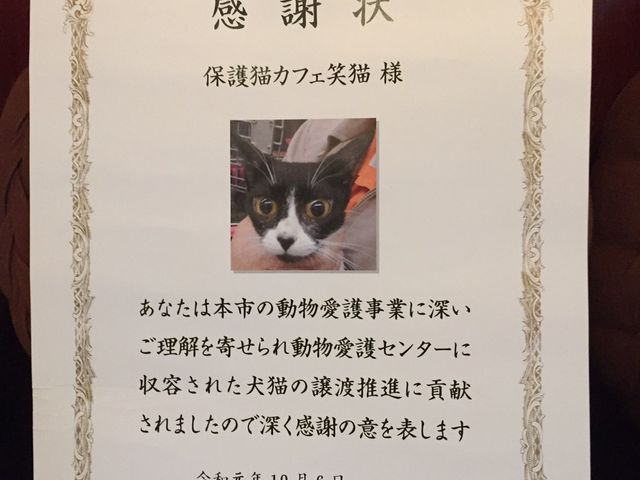 感謝状
保護猫カフェ笑猫 様
あなたは本市の動物愛護事業に深い
ご理解を寄せられ動物愛護センターに
収容された犬猫の譲渡推進に貢献
されましたので深く感謝の意を表します
令和元年10月6日